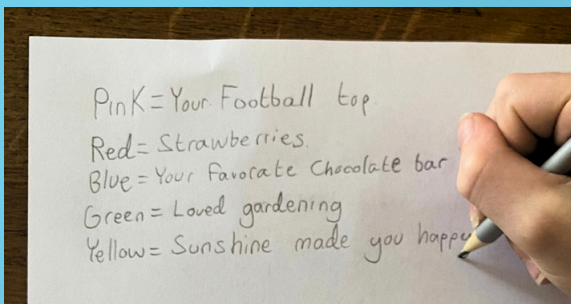 Pink = Your Football top.
Red = Strawberries.
Blue = Your Favorate Chocolate bar
Green = Loved gardening
Yellow = Sunshine made you happy